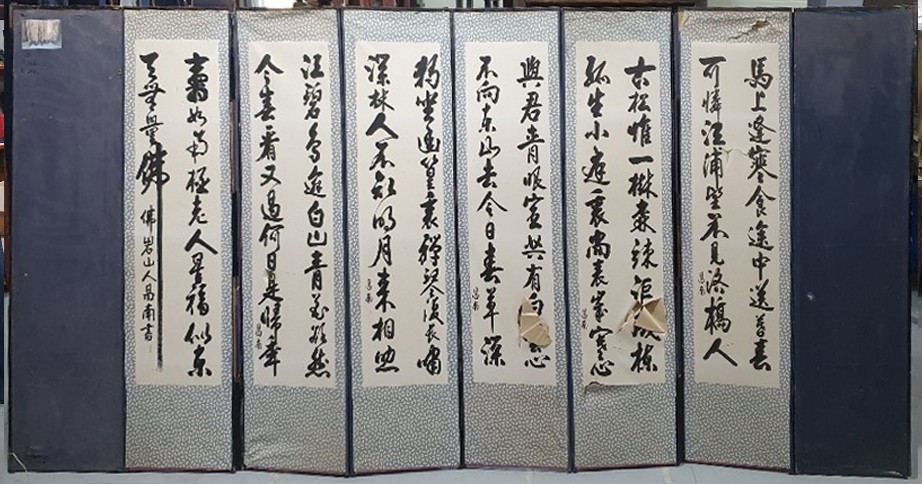 馬上逢寒食途中送暮春
可憐江浦望不見洛橋人
昌南
古松惟一樹森竦詎成林
孤生小庭裏尚表歲寒心
昌南
與君青眼客共有白雲心
不向東山去今日春草深
昌南
獨坐幽篁裏彈琴復長嘯
深林人不知明月來相照
昌南
江碧鳥逾白山青花欲然
今春看又過何日是歸年
昌南
壽如南極老人星福似東
天無量佛
佛岩山人昌南書